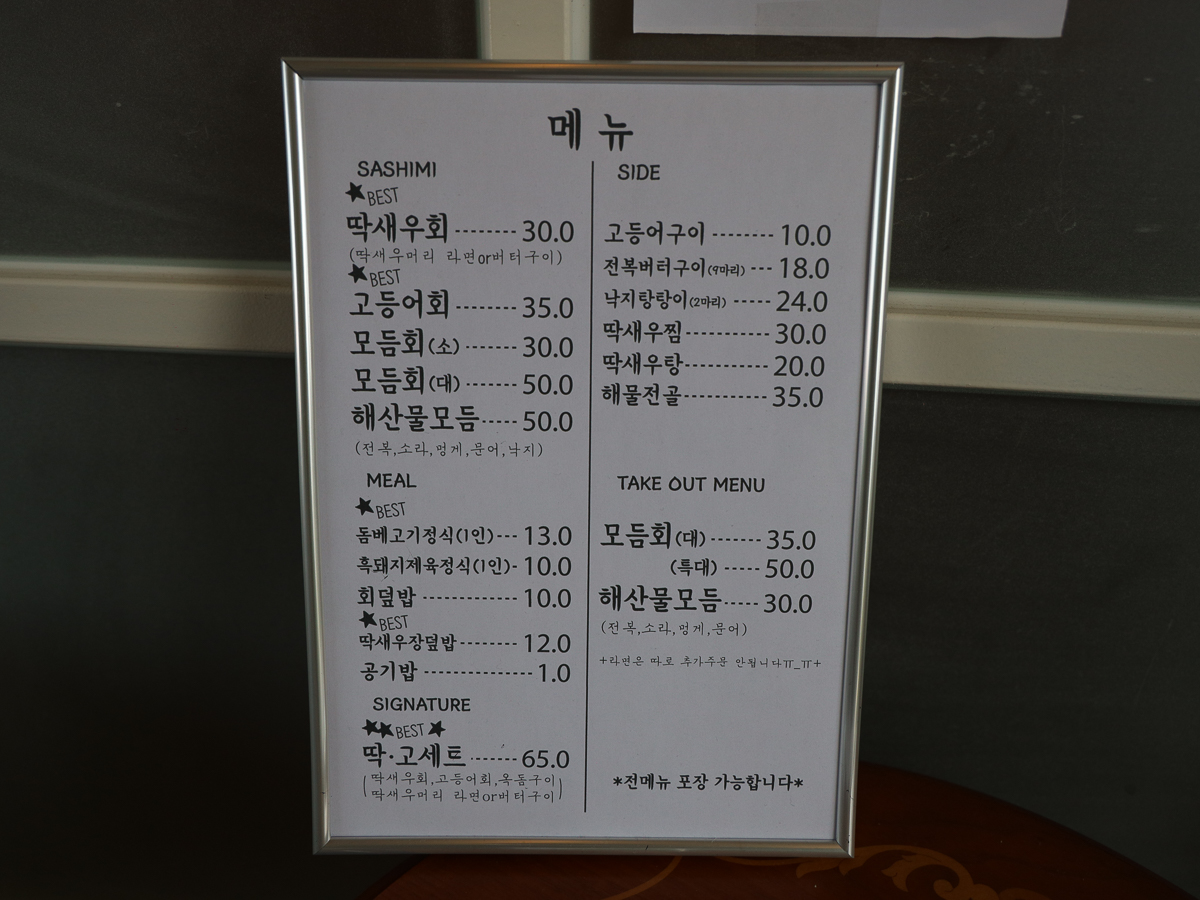 메뉴
SASHIMI
★BEST
딱새우회 -------- 30.0
(딱새우머리 라면or버터구이)
★BEST
고등어회 ------ 35.0
모듬회(소) ------- 30.0
모듬회(대) ------- 50.0
해산물모듬 ----- 50.0
(전복,소라,멍게,문어,낙지)
MEAL
★BEST
돔베고기정식(1인)--- 13.0
흑돼지제육정식(1인)- 10.0
회덮밥 ------------- 10.0
★BEST
딱새우장덮밥-------- 12.0
공기밥 -------------- 1.0
SIGNATURE
★★BEST★
딱·고세트 ------- 65.0
(딱새우회,고등어회,옥돔구이
딱새우머리 라면or버터구이)
SIDE
고등어구이 -------- 10.0
전복버터구이(9마리) --- 18.0
낙지탕탕이(2마리) ----- 24.0
딱새우찜 ----------- 30.0
딱새우탕 ----------- 20.0
해물전골 ----------- 35.0
TAKE OUT MENU
모듬회(대) ------- 35.0
(특대) ----- 50.0
해산물모듬 ----- 30.0
(전복,소라,멍게,문어)
+라면은 따로 추가주문 안됩니다ㅠ_ㅠ+
*전메뉴 포장 가능합니다*